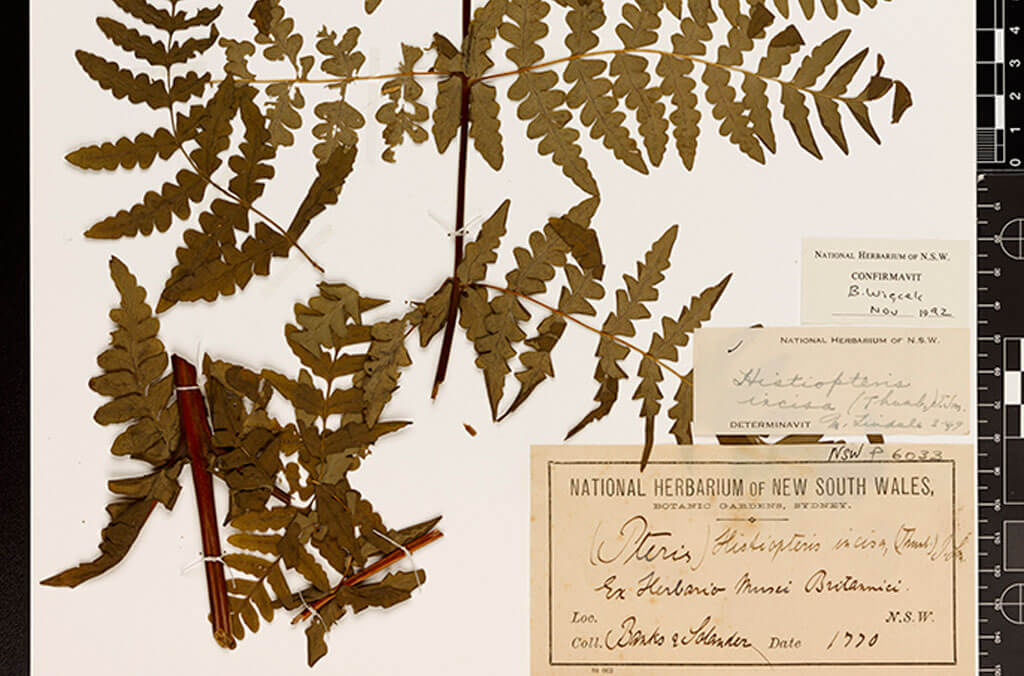 NATIONAL HERBARIUM OF N.S.W.
CONFIRMAVIT
B. Wiecek
Nov 1992
NATIONAL HERBARIUM OF N.S.W.
Histiopteris
incisa (Thunb.)
DETERMINAVIT M. Tindale
NSW P 6033
NATIONAL HERBARIUM OF NEW SOUTH WALES,
BOTANIC GARDENS, SYDNEY.
(Pteris) Histiopteris incisa, (Thunb.)
Ex Herbario Musei Britannici.
Loc. N.S.W.
Coll. Banks & Solander Date 1770
4
3
2
1
0